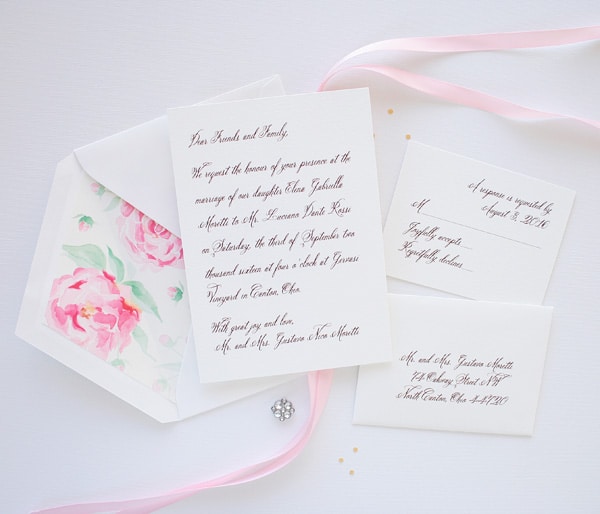 Dear Friends and Family,
We request the honour of your presence at the
marriage of our daughter Elena Gabriella
Moretti to Mr. Luciano Dante Rossi
on Saturday, the third of September two
thousand sixteen at four o'clock at Gervasi
Vineyard in Canton, Ohio.
With great joy and love,
Mr. and Mrs. Gustavo Nevo Moretti
A response is requested by
August 3, 2016
M
Joyfully accepts
Regretfully declines
Mr. and Mrs. Gustavo Moretti
74 Oakway Street NW
North Canton, Ohio 44720